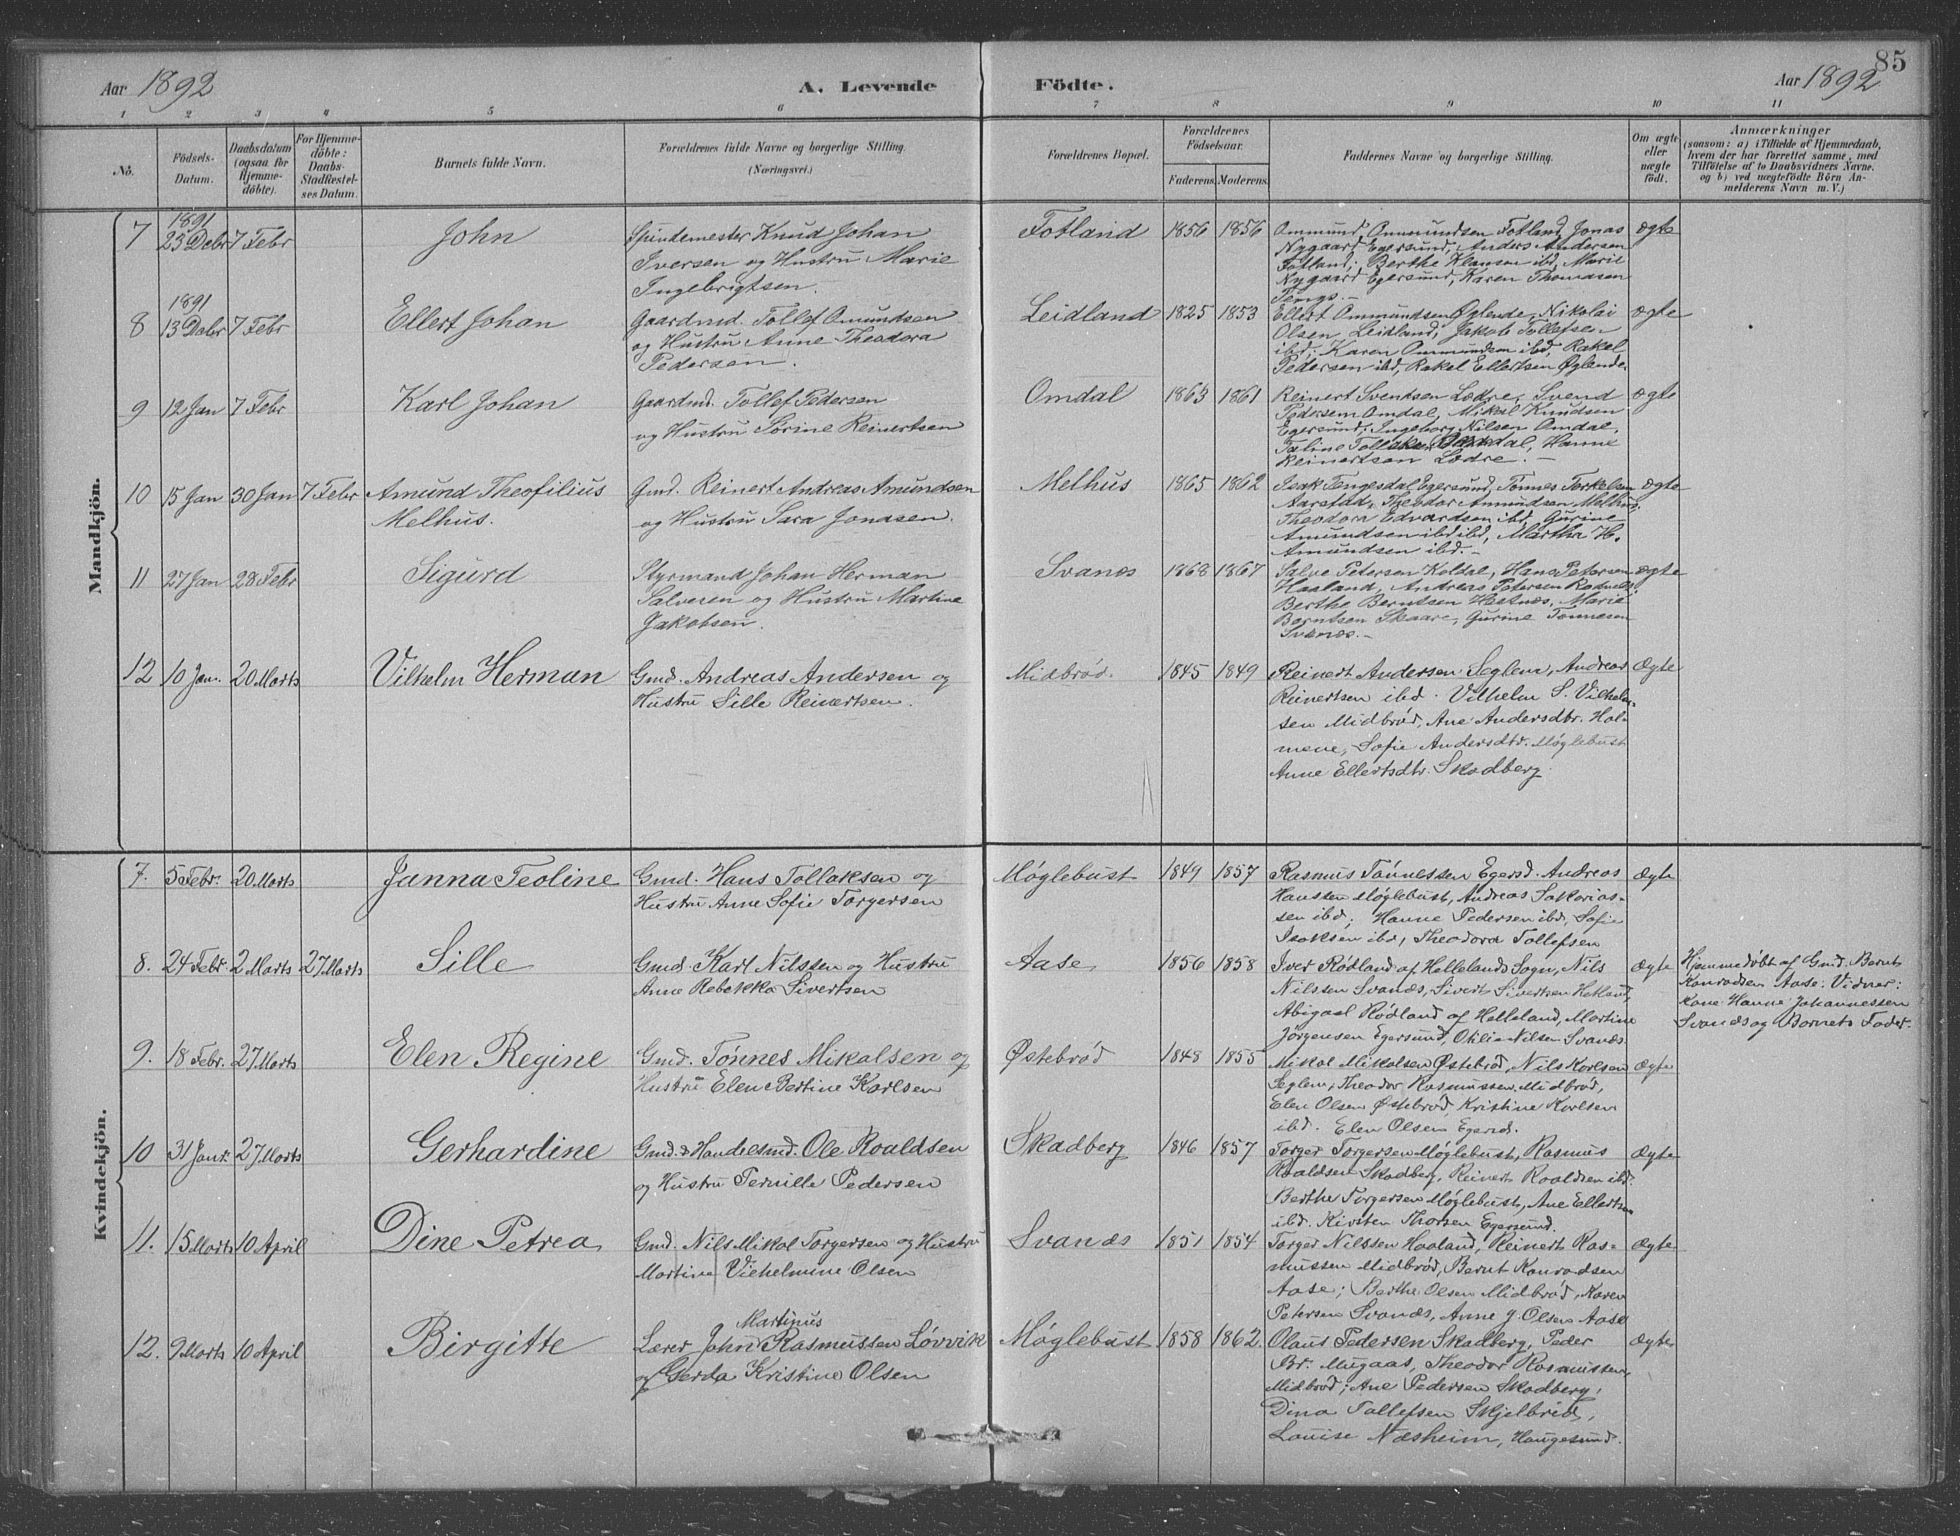 85
Aar 1892
A. Levende
Födte.
Aar 1892
1 2 3 4 5 6 7 8 9 10 11
No.
Födsels-
Datum.
Daabsdatum
(ogsaa for
Hjemme-
döbte).
For Hjemme-
döbte:
Daabs-
Stadfæstel-
ses Datum.
Barnets fulde Navn.
Forældrenes fulde Navne og borgerlige Stilling.
(Næringsvei.)
Forældrenes Bopæl.
Forældrenes
Födselsaar.
Faderens. Moderens.
Faddernes Navne og borgerlige Stilling.
Om ægte
eller
uægte
født.
Anmærkninger
(saasom: a) i Tilfælde af Hjemmedaab,
hvem der har forrettet samme, med
Tilföielse af to Daabsvidners Navne.
og b) ved uægtefödte Börn An-
melderens Navn m. V.)
Mandkjön.
7 1891 23 Debr 7 Febr John
Spindemester Knud Johan
Iversen og Hustru Marie
Ingebrigtsen.
Fotland 1856 1856
Ommund Ommundsen Fotland, Jonas
Nygaard, Egersund, Anders Andersen
Fotland; Berthe Klausen ibd, Marie
Nygaard Egersund, Karen Thomasen
Tengs. —
ægte
8 1891 13 Debr 7 Febr Ellert Johan
Gaardmd. Tollef Omundsen
og Hustru Anne Theodora
Pedersen.
Leidland 1825 1853
Ellert Ommundsen Øglende, Nikolai
Olsen Leidland, Jakob Tollefsen
ibd; Karen Ommundsen ibd, Rakel
Pedersen ibd, Rakel Ellertsen Øglende.
ægte
9 12 Jan 7 Febr Karl Johan
Gaardmd. Tollef Pedersen
og Hustru Sørine Reinertsen
Omdal 1863 1861
Reinert Svendsen Lædre, Svend
Pedersen Omdal, Mikal Knudsen
Egersund; Ingeborg Nilsen Omdal,
Hanne
Reinertsen Lædre. —
ægte
10 15 Jan 30 Jan 7 Febr Amund Theofilius
Melhus.
Gmd. Reinert Andreas Amundsen
og Hustru Sara Jonasen.
Melhus 1865 1862
Isak Tengesdal Egersund, Tønnes Terkelsen
Aarstad, Theodor Ammundsen Melhus,
Theodora Edvardsen ibd, Gurine
Amundsen ibd ibd, Martha H.
Amundsen ibd. —
ægte
11 27 Jan 28 Febr Sigurd
Styrmand Johan Herman
Salvesen og Hustru Martine
Jakobsen.
Svanes 1868 1867
Salve Petersen Koldal, Hans Petersen
Haaland, Andreas Petersen
Berthe Berntsen Hestnes, Marie
Berntsen Skaare, Gurine Tønnesen
Svanes. —
ægte
12 10 Jan. 20 Marts Vilhelm Herman
Gmd. Andreas Andersen og
Hustru Sille Reinertsen.
Midbrød. 1845 1849
Reinert Andersen Seglem, Andreas
Reinertsen ibd. Vilhelm S. Vilhelm-
sen Midbrød, Ane Andersdtr. Hol-
mene, Sofie Andersdtr. Møglebust
Anne Ellertsdtr. Skadberg.
Ægte
Kvindekjön.
7. 5 Febr. 20 Marts Janna Teoline
Gmd. Hans Tollaksen og
Hustru Anne Sofie Torgersen
Møglebust 1849 1857
Rasmus Tønnessen Egersd. Andreas
Hanssen Møglebust, Andreas Sakarias-
sen ibd; Hanne Pedersen ibd, Sofie
Isaksen ibd, Theodora Tollefsen
Ægte
8. 24 Febr. 2 Marts 27 Marts Sille
Gmd. Karl Nilssen og Hustru
Anne Rebekka Sivertsen
Aase 1856 1858
Iver Rødland af Hellelands Sogn, Nils
Nilssen Svanæs, Sivert Sivertsen Hetland,
Abigael Rødland af Helleland, Martine
Jørgensen Egersund, Otilie Nilsen Svanæs.
Ægte
Hjemmedøbt af Gmd. Bernt
Konradsen Aase. Vidner:
Kone Hanne Johannessen
Svanæs og Barnets Fader.
9. 18 Febr. 27 Marts Elen Regine
Gmd. Tønnes Mikalsen og
Hustru Elene Bertine Karlsen
Østebrød 1848 1855
Mikal Mikalsen Østebrød, Nils Karlsen
Seglem, Theodor Rasmussen Midbrød,
Elen Olsen Østebrød, Kristine Karlsen
ibd. Elen Olsen Egersd.
Ægte
10 31 Janr. 27 Marts Gerhardine
Gmd & Handelsmd. Ole Roaldsen
og Hustru Pernille Pedersen
Skadberg 1846 1857
Torger Torgersen Møglebust, Rasmus
Roaldsen Skadberg, Reinert Roaldsen ibd.
Berthe Torgersen Møglebust, Ane Ellertsen
ibd. Kirsten Thorsen Egersund.
Ægte
11. 15 Marts 10 April Dine Petrea
Gmd. Nils Mikal Torgersen og Hustru
Martine Vilhelmine Olsen
Svanæs 1851 1854
Torger Nilssen Haaland, Reinert Ras-
mussen Midbrød, Bernt Konradsen
Aase; Berthe Olsen Midbrød, Karen
Petersen Svanæs, Anne J. Olsen Aase
Ægte
12. 9 Marts 10 April Birgitte
Martinus
Lærer John Rasmussen Løvvik
og Gerda Kristine Olsen
Møglebust 1858 1862.
Olaus Pedersen Skadberg, Peder
Br. Mugaas, Theodor Rasmussen
Midbrød; Ane Pedersen Skadberg,
Dina Tollefsen Skjelbred,
Louise Næsheim, Haugesund.
Ægte